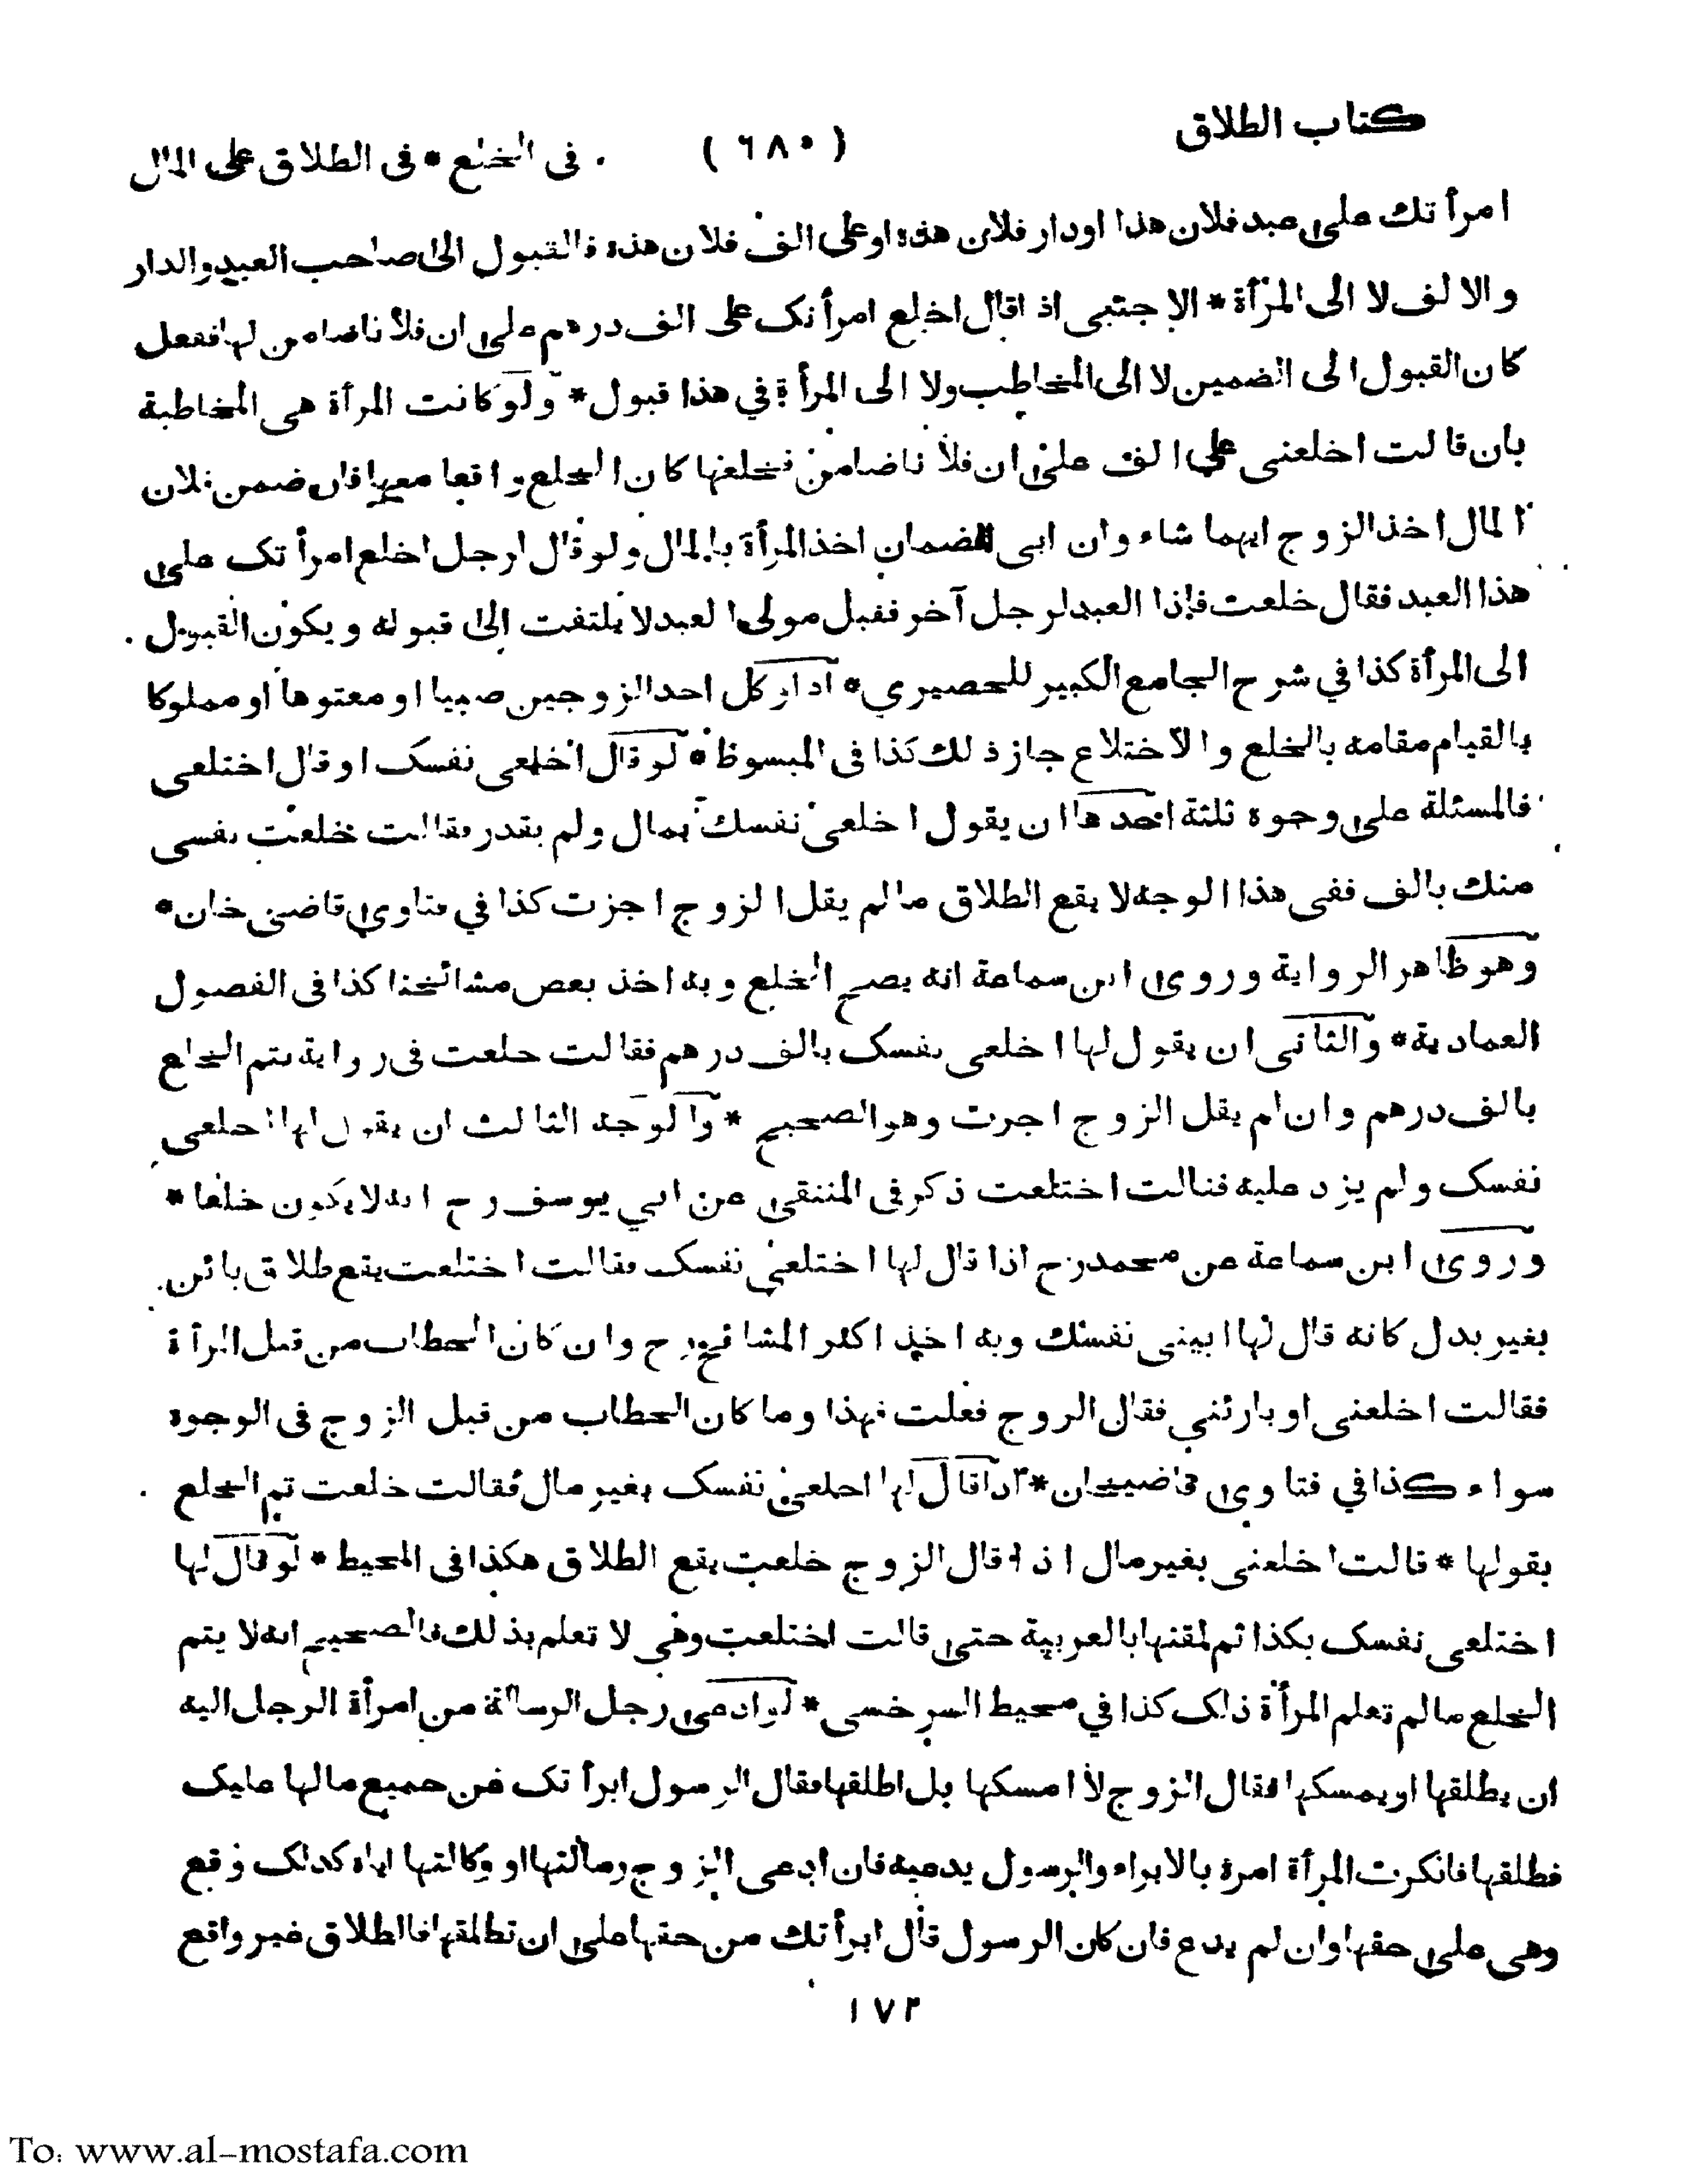 كتاب الطلاق
( ٦٨٠ )
في الخلع * في الطلاق على المال
امرأتك على عبد فلان هذا او دار فلان هذه او على الف فلان هذه فالقبول الى صاحب العبد والدار
والالف لا الى المرأة * الاجنبي اذا قال اخلع امرأتك على الف درهم على ان فلانا ضامن لها ففعل
كان القبول الى الضمين لا الى المخاطب ولا الى المرأة في هذا قبول * ولو كانت المرأة هى المخاطبة
بان قالت اخلعنى على الف على ان فلانا ضامن فخلعها كان الخلع واقعا معها فان ضمن فلان
المال اخذ الزوج ايهما شاء وان ابى الضمان اخذ المرأة بالمال ولو قال لرجل اخلع امرأتك على
هذا العبد فقال خلعت فاذا العبد لرجل آخر فقبل مولى العبد لا يلتفت الى قبوله ويكون القبول
الى المرأة كذا في شرح الجامع الكبير للحصيري * اذا وكل احد الزوجين صبيا او معتوها او مملوكا
بالقيام مقامه بالخلع والاختلاع جاز ذلك كذا فى المبسوط * لو قال اخلعى نفسك او قال اختلعى
فالمسئلة على وجوه ثلثة احدها ان يقول اخلعى نفسك بمال ولم يقدر فقالت خلعت نفسى
منك بالف ففى هذا الوجه لا يقع الطلاق ما لم يقل الزوج اجزت كذا في فتاوى قاضى خان *
وهو ظاهر الرواية وروى ابن سماعة انه يصح الخلع وبه اخذ بعض مشائخنا كذا فى الفصول
العمادية * والثانى ان يقول لها اخلعى نفسك بالف درهم فقالت خلعت فى رواية يتم الخلع
بالف درهم وان لم يقل الزوج اجزت وهو الصحيح * والوجه الثالث ان يقول لها اخلعى
نفسك ولم يزد عليه فقالت اختلعت ذكر فى المنتقى عن ابي يوسف رح انه لا يكون خلعا *
وروى ابن سماعة عن محمد رح اذا قال لها اختلعى نفسك فقالت اختلعت يقع طلاق بائن
بغير بدل كانه قال لها ابينى نفسك وبه اخذ اكثر المشائخ رح وان كان الخطاب من قبل المرأة
فقالت اخلعنى او بارئني فقال الزوج فعلت فهذا وما كان الخطاب من قبل الزوج فى الوجوه
سواء كذا في فتاوى قاضيخان * اذا قال لها اخلعى نفسك بغير مال فقالت خلعت تم الخلع
بقولها * قالت اخلعنى بغير مال اذا قال الزوج خلعت يقع الطلاق هكذا فى المحيط * لو قال لها
اختلعى نفسك بكذا ثم لقنها بالعربية حتى قالت اختلعت وهى لا تعلم بذلك فالصحيح انه لا يتم
الخلع ما لم تعلم المرأة ذلك كذا في محيط السرخسى * لو ادعى رجل الرسالة من امرأة الرجل اليه
ان يطلقها او يمسكها فقال الزوج لا امسكها بل اطلقها فقال الرسول ابرأتك عن جميع ما لها عليك
فطلقها فانكرت المرأة امره بالابراء والرسول يدعيه فان ادعى الزوج رسالتها او وكالتها اياه كذلك وقع
وهى على حقها وان لم يدع فان كان الرسول قال ابرأتك من حقها على ان تطلقها فالطلاق غير واقع
١٧٢
To: www.al-mostafa.com